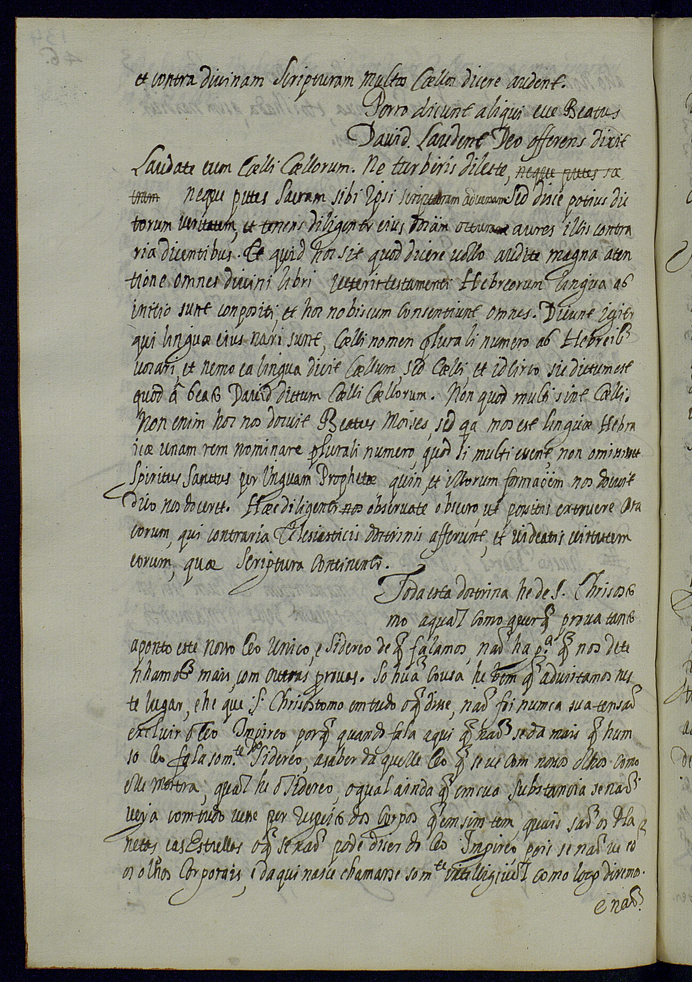 et contra divinam Scripturam multos Cœllos dicere audent.
Porro dicunt aliqui ecce Beatus
David. Laudent Deo offerens dixit
Laudate eum Cœlli Cœllorum. Ne turberis dilecte, neque putes sa
cram neque putes Sacram sibi Ipsi scripturam adversam Sed disce potius dic
torum veritatem, et tenens diligenter eius aures illis contra
ria dicentibus. Et quid hoc sit quod dicere vollo audite magna aten
tione omnes divini libri veteris testamenti Hebreorum lingua ab
initio sunt conpositi, et hoc nobiscum consentiunt omnes. Dicunt igitr
qui linguæ eius nari sunt, Cœlli nomen plurali numero ab Hebreis
vocari, et nemo ea lingua dicit Cœllum, sed Cœlli, et idcirco sic dictum est
quod á beato David dictum Cœlli Cœllorum. Non quod multi sint Cœlli.
Non enim hoc nos docuit Beatus Moises, sed qa mos est linguæ Hebra
icæ unam rem nominare plurali numero, quod si multi essent non omisisset
Spiritus Sanctus per linguam Prophetæ quin et illorum formaçem nos docuit
Hæc diligenter nos observate obsecro ut possitis extruere ora
eorum, qui contraria Eclesiasticis doctrinis afferunt, et videatis virtutem
eorum, quæ Scriptura Continentr.
Toda esta doctrina he de S. Chrisos
mo aqual como quer q prova tanto
aponto este novo Ceo Unico, e Sidereo de q falamos, naõ ha pa. q nos dete
nhamos mais, com outras provas. So huã Cousa he bem q advirtamos nes
te lugar, e he que S. Chrisostomo em tudo o q disse, naõ foi nunca sua tensaõ
excluir o Ceo Impireo porq quando fala aqui q naõ se da mais q hum
so Ceo fala somte. Sidereo, a saber da quelle Ceo q se ve com nosos olhos como
elle mostra, qual he o Sidereo, o qual ainda q em sua Substancia se naõ
veja com tudo vese per respeito dos Corpos q em sim tem, quais saõ os Pla
netas e as Estrellas o q se naõ pode dizer do Ceo Impireo pois se naõ ve co
os olhos Corporais, e da qui nasce chamarse somte intiligivel como logo diremos.
e naõ